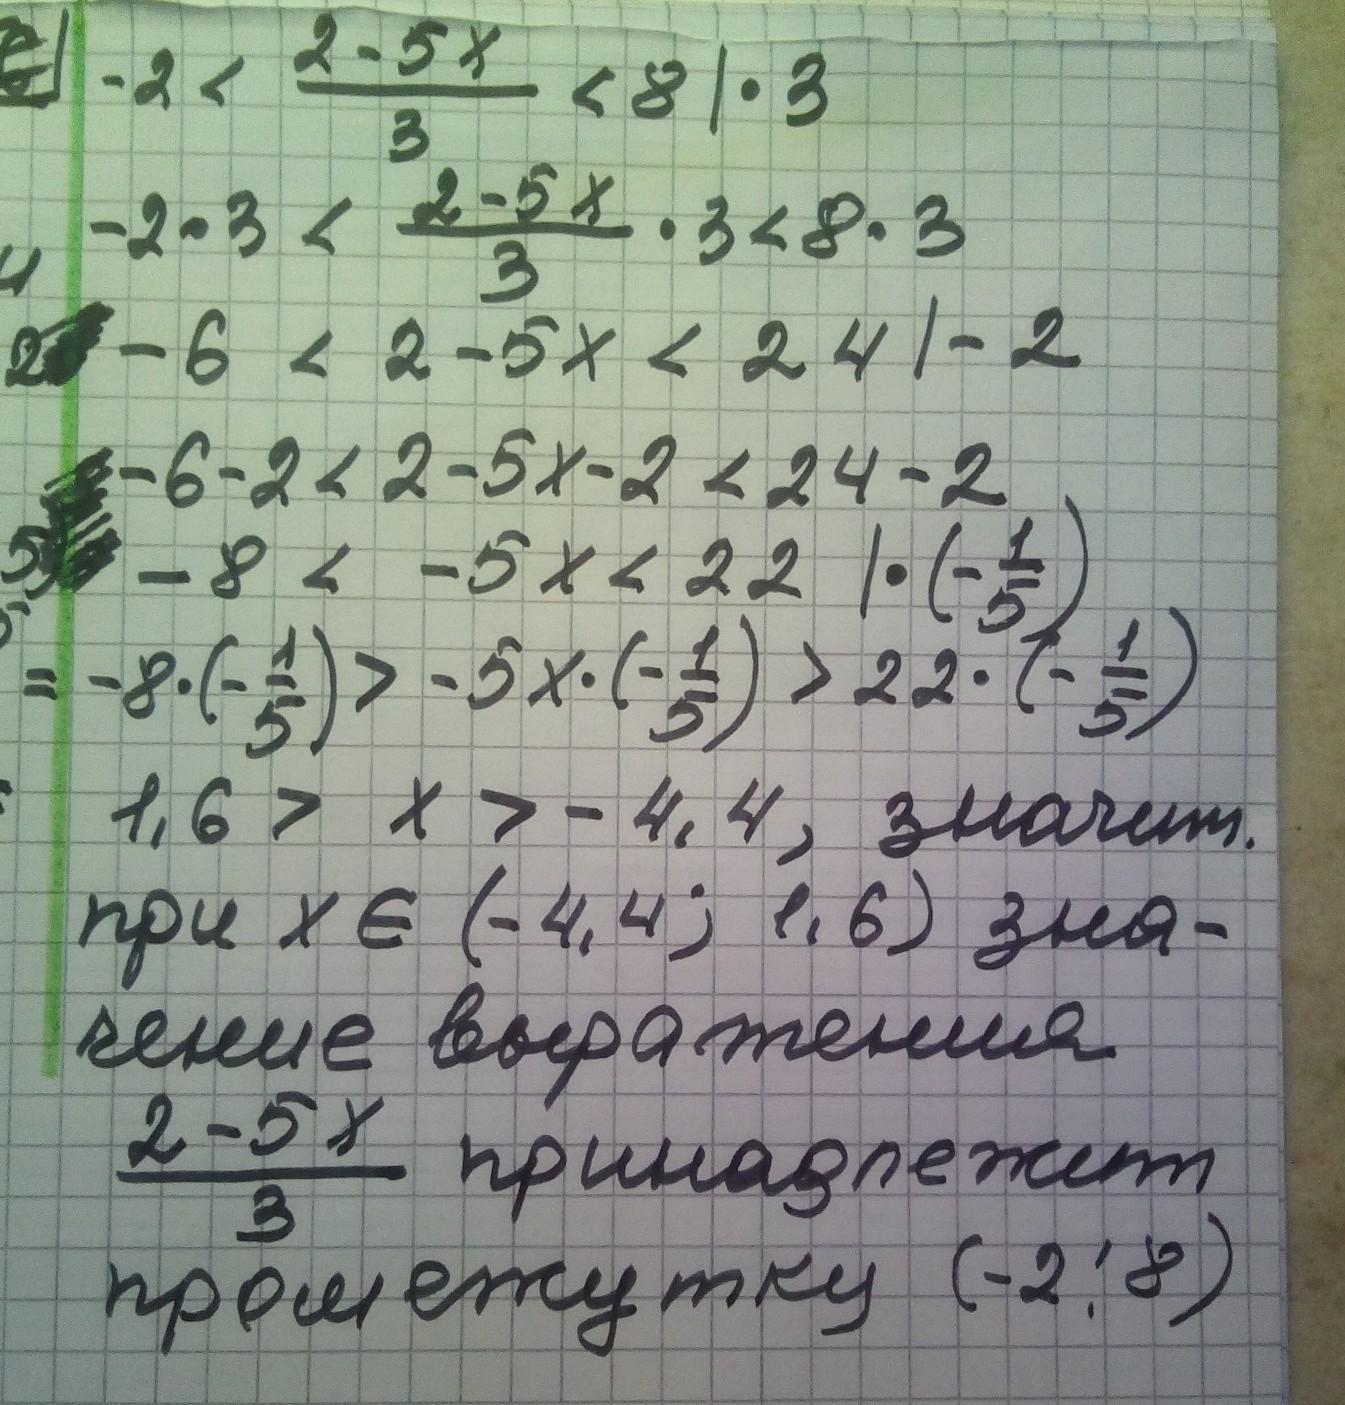 -2 < (2-5x)/3 < 8 | · 3
-2·3 < (2-5x)/3 · 3 < 8 · 3
-6 < 2-5x < 24 | - 2
-6-2 < 2-5x-2 < 24-2
-8 < -5x < 22 | · (-1/5)
= -8·(-1/5) > -5x·(-1/5) > 22·(-1/5)
1,6 > x > -4,4, значит.
при x ∈ (-4,4; 1,6) зна-
чение выражения
(2-5x)/3 принадлежит
промежутку (-2; 8)